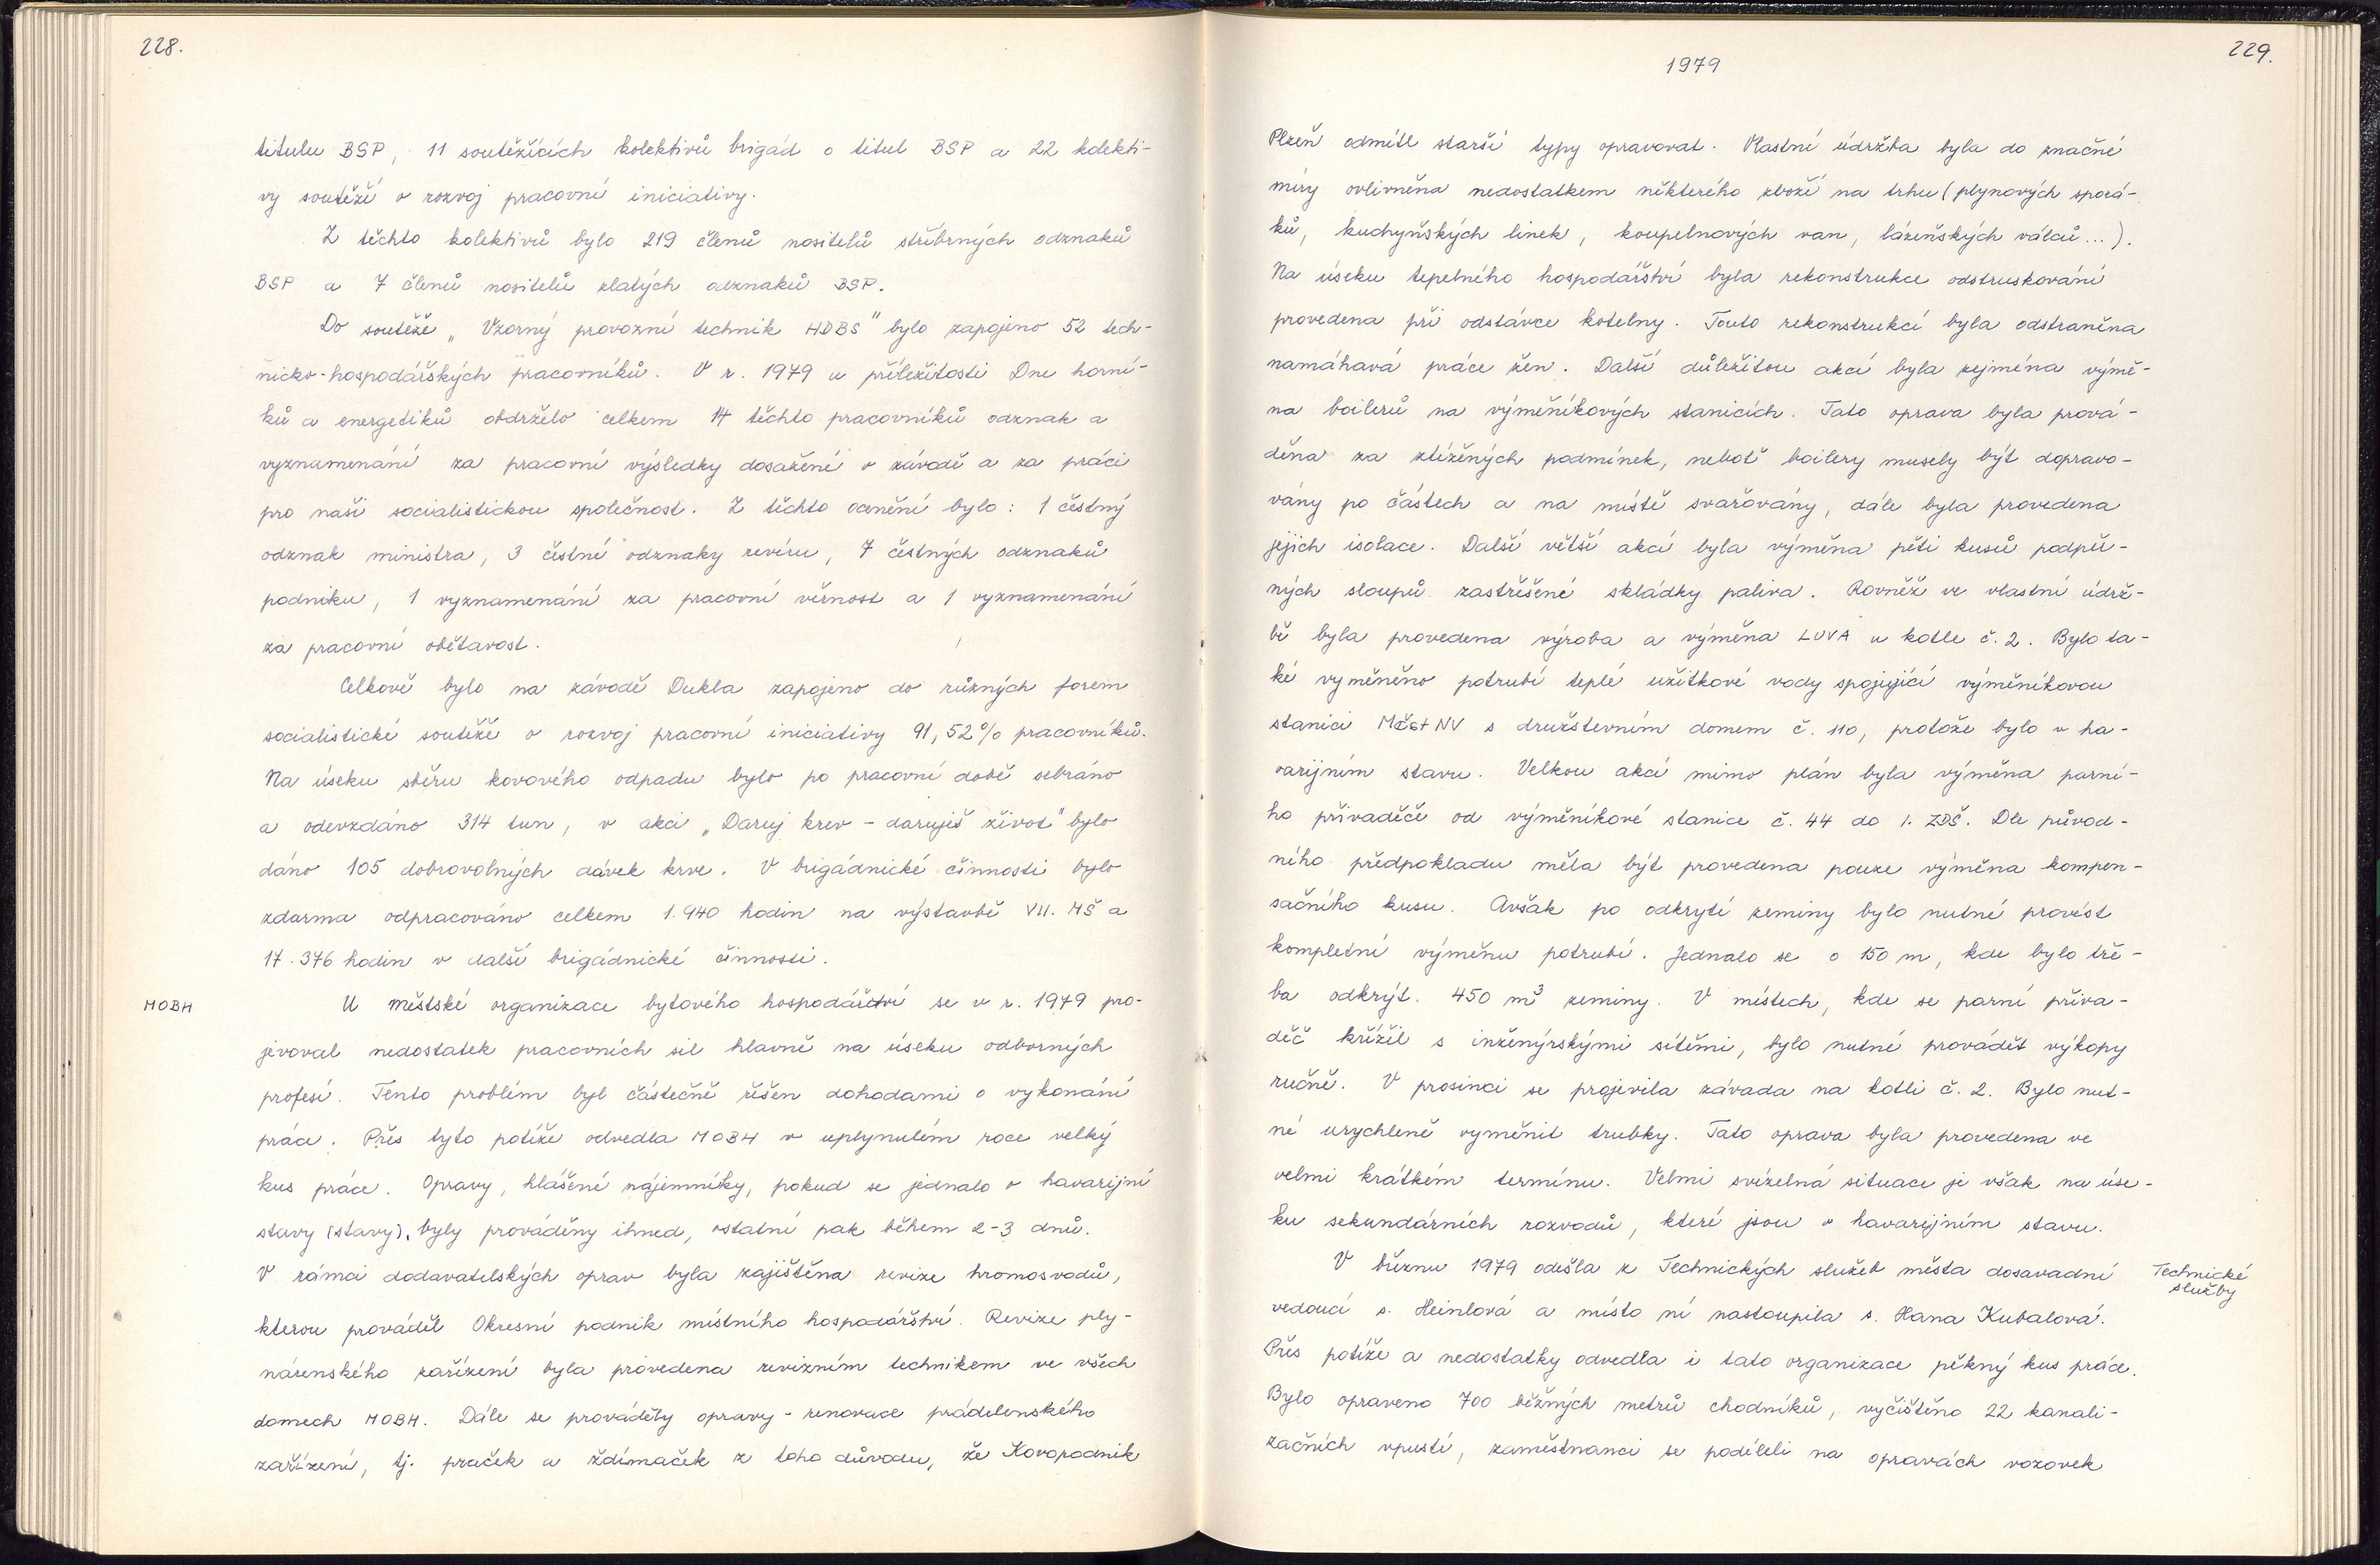 228.
titulu BSP, 11 soutěžících kolektivů brigád o titul BSP a 22 kolekti-
vy soutěží o rozvoj pracovní iniciativy.
Z těchto kolektivů bylo 219 členů nositelů stříbrných odznaků
BSP a 7 členů nositelů zlatých odznaků BSP.
Do soutěže „Vzorný provozní technik HDBS" bylo zapojeno 52 tech-
nicko-hospodářských pracovníků. V r. 1979 u příležitosti Dne horní-
ků a energetiků obdrželo celkem 14 těchto pracovníků odznak a
vyznamenání za pracovní výsledky dosažené v závodě a za práci
pro naši socialistickou společnost. Z těchto ocenění bylo: 1 čestný
odznak ministra, 3 čestné odznaky revíru, 7 čestných odznaků
podniku, 1 vyznamenání za pracovní věrnost a 1 vyznamenání
za pracovní obětavost.
Celkově bylo na závodě Dukla zapojeno do různých forem
socialistické soutěže o rozvoj pracovní iniciativy 91,52% pracovníků.
Na úseku sběru kovového odpadu bylo po pracovní době sebráno
a odevzdáno 314 tun, v akci „Daruj krev - daruješ život" bylo
dáno 105 dobrovolných dávek krve. V brigádnické činnosti bylo
zdarma odpracováno celkem 1.940 hodin na výstavbě VII. MŠ a
17.376 hodin v další brigádnické činnosti.
MOBH
U městské organizace bytového hospodářství se v r. 1979 pro-
jevoval nedostatek pracovních sil hlavně na úseku odborných
profesí. Tento problém byl částečně řešen dohodami o vykonání
práce. Přes tyto potíže odvedla MOBH v uplynulém roce velký
kus práce. Opravy, hlášené nájemníky, pokud se jednalo o havarijní
stavy (stavy), byly prováděny ihned, ostatní pak během 2-3 dnů.
V rámci dodavatelských oprav byla zajištěna revize hromosvodů,
kterou prováděl Okresní podnik místního hospodářství. Revize ply-
nárenského zařízení byla provedena revizním technikem ve všech
domech MOBH. Dále se prováděly opravy - renovace prádelenského
zařízení, tj. praček a ždímaček z toho důvodu, že Kovopodnik
229.
1979
Plzeň odmítl starší typy opravovat. Vlastní údržba byla do značné
míry ovlivněna nedostatkem některého zboží na trhu (plynových sporá-
ků, kuchyňských linek, koupelnových van, lázeňských válců...).
Na úseku tepelného hospodářství byla rekonstrukce odstruskování
provedena při odstávce kotelny. Touto rekonstrukcí byla odstraněna
namáhavá práce žen. Další důležitou akcí byla zejména výmě-
na boilerů na výměníkových stanicích. Tato oprava byla prová-
děna za ztížených podmínek, neboť boilery musely být dopravo-
vány po částech a na místě svařovány, dále byla provedena
jejich isolace. Další větší akcí byla výměna pěti kusů podpěr-
ných sloupů zastřešené skládky paliva. Rovněž ve vlastní údrž-
bě byla provedena výroba a výměna LUVA u kotle č. 2. Bylo ta-
ké vyměněno potrubí teplé užitkové vody spojující výměníkovou
stanici MěstNV s družstevním domem č. 110, protože bylo v ha-
varijním stavu. Velkou akcí mimo plán byla výměna parní-
ho přivaděče od výměníkové stanice č. 44 do 1. ZDŠ. Dle původ-
ního předpokladu měla být provedena pouze výměna kompen-
sačního kusu. Avšak po odkrytí zeminy bylo nutné provést
kompletní výměnu potrubí. Jednalo se o 150 m, kde bylo tře-
ba odkrýt. 450 m³ zeminy. V místech, kde se parní přiva-
děč křížil s inženýrskými sítěmi, bylo nutné provádět výkopy
ručně. V prosinci se projevila závada na kotli č. 2. Bylo nut-
né urychleně vyměnit trubky. Tato oprava byla provedena ve
velmi krátkém termínu. Velmi svízelná situace je však na úse-
ku sekundárních rozvodů, které jsou v havarijním stavu.
V březnu 1979 odešla z Technických služeb města dosavadní
Technické
služby
vedoucí s. Heinlová a místo ní nastoupila s. Hana Kubalová.
Přes potíže a nedostatky odvedla i tato organizace pěkný kus práce.
Bylo opraveno 700 běžných metrů chodníků, vyčištěno 22 kanali-
začních vpustí, zaměstnanci se podíleli na opravách vozovek